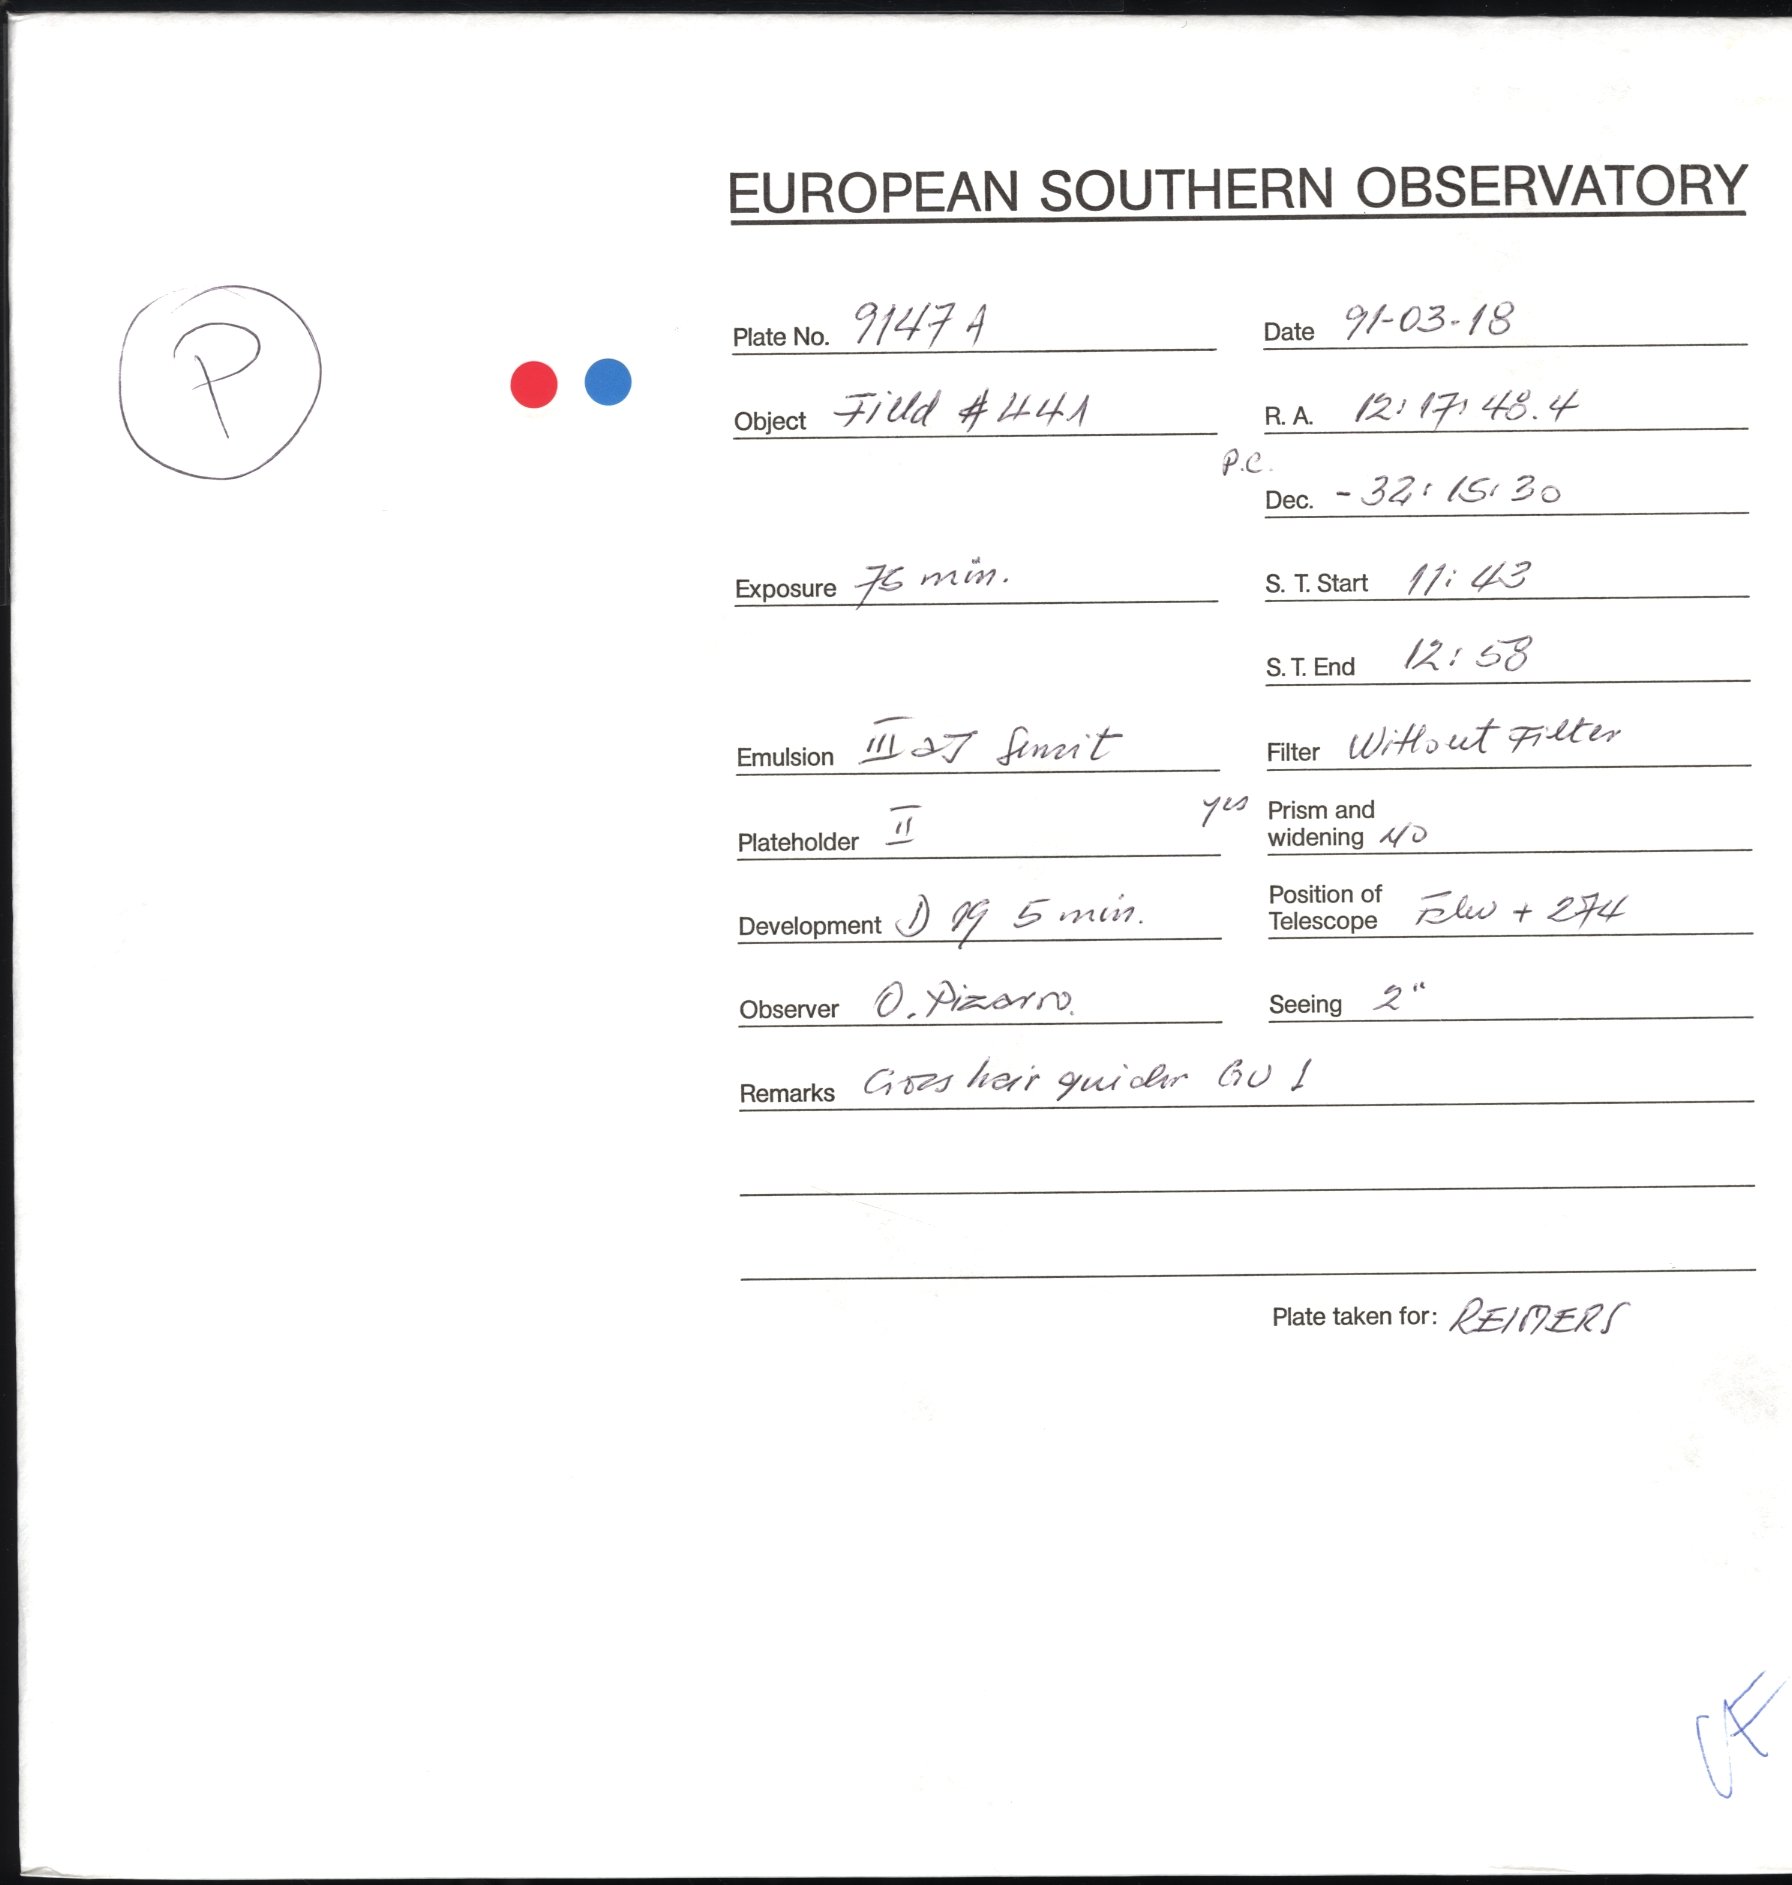 EUROPEAN SOUTHERN OBSERVATORY
P
Plate No. 9147 A
Date 91-03-18
Object Field # 441
R. A. 12: 17: 48.4
P.C.
Dec. - 32: 15: 30
Exposure 75 min.
S. T. Start 11: 43
S. T. End 12: 58
Emulsion III aJ Sensit
Filter Without Filter
Plateholder II
yes Prism and
widening NO
Development D 19 5 min.
Position of
Telescope + 274
Observer O. Pizarro.
Seeing 2"
Remarks Cross hair guider GU 1
Plate taken for: REIMERS